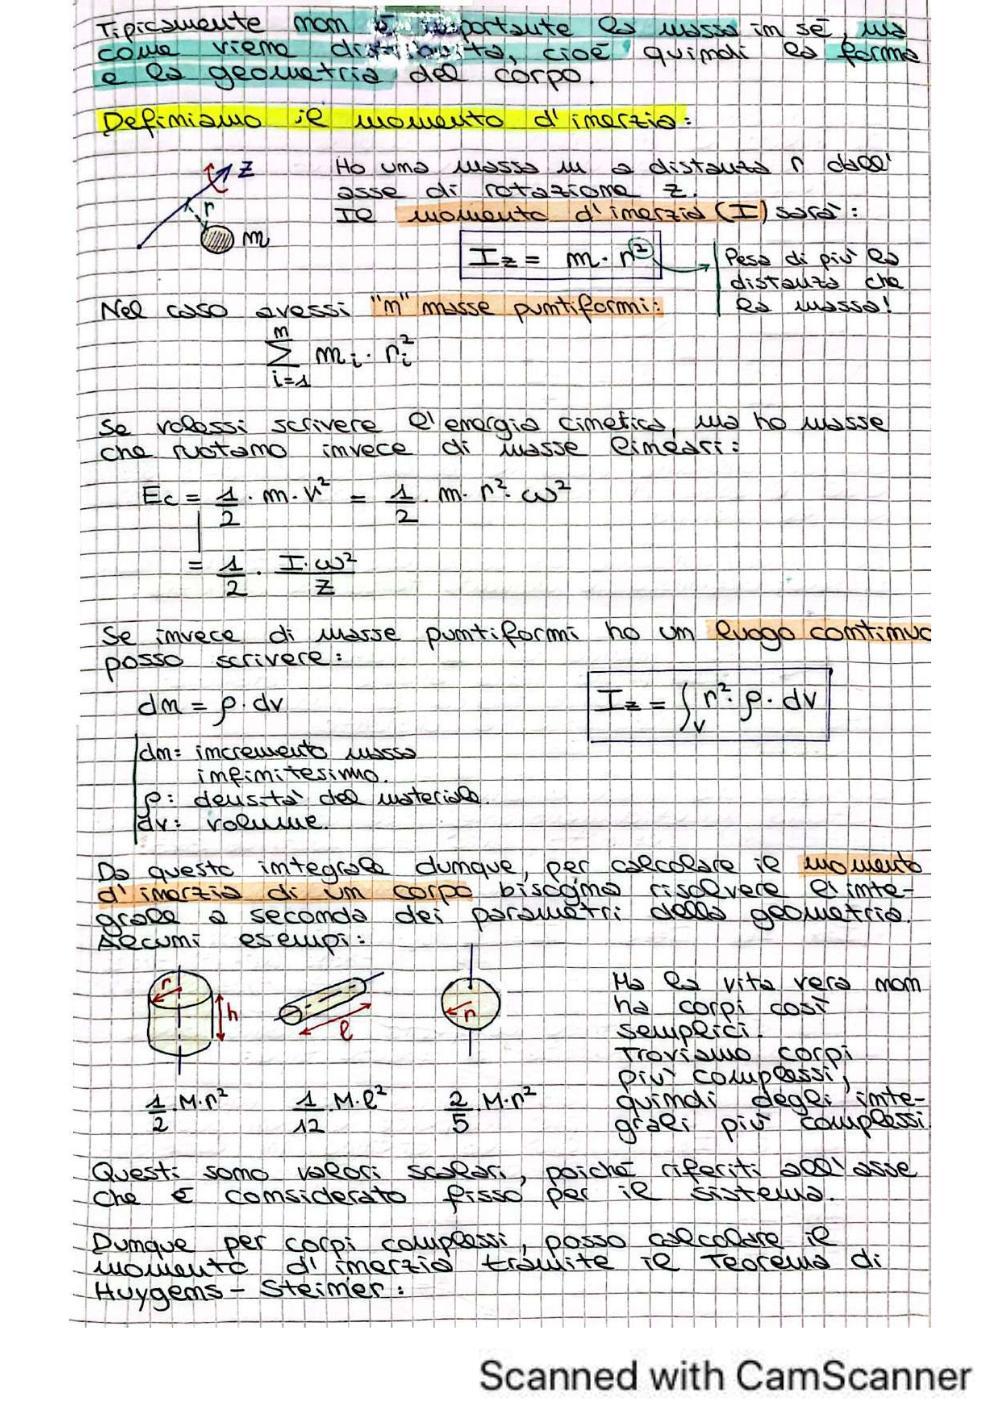 Tipicamente non è importante la massa in sé, ma
come viene distribuita, cioè quindi la forma
e la geometria del corpo.
Definiamo il momento d'inerzia:
z
r
m
Ho una massa m a distanza r dall'
asse di rotazione z.
Il momento d'inerzia (I) sarà:
Iz = m · r²
Pesa di più la
distanza che
la massa!
Nel caso avessi "n" masse puntiformi:
n
∑ mi · ri²
i=1
Se volessi scrivere l'energia cinetica, ma ho masse
che ruotano invece di masse lineari:
Ec = 1/2 · m · v² = 1/2 · m · r² · ω²
= 1/2 · I·ω²/z
Se invece di masse puntiformi ho un luogo continuo
posso scrivere:
dm = ρ · dv
Iz = ∫v r² · ρ · dv
dm: incremento massa
infinitesimo.
ρ: densità del materiale.
dv: volume.
Da questo integrale dunque, per calcolare il momento
d'inerzia di un corpo bisogna risolvere l'inte-
grale a seconda dei parametri della geometria.
Alcuni esempi:
r
h
l
r
1/2 · M·r²
1/12 · M·l²
2/5 · M·r²
Ma la vita vera non
ha corpi così
semplici.
Troviamo corpi
più complessi,
quindi degli inte-
grali più complessi
Questi sono valori scalari, poiché riferiti all'asse
che è considerato fisso per il sistema.
Dunque per corpi complessi, posso calcolare il
momento d'inerzia tramite il Teorema di
Huygens - Steiner:
Scanned with CamScanner